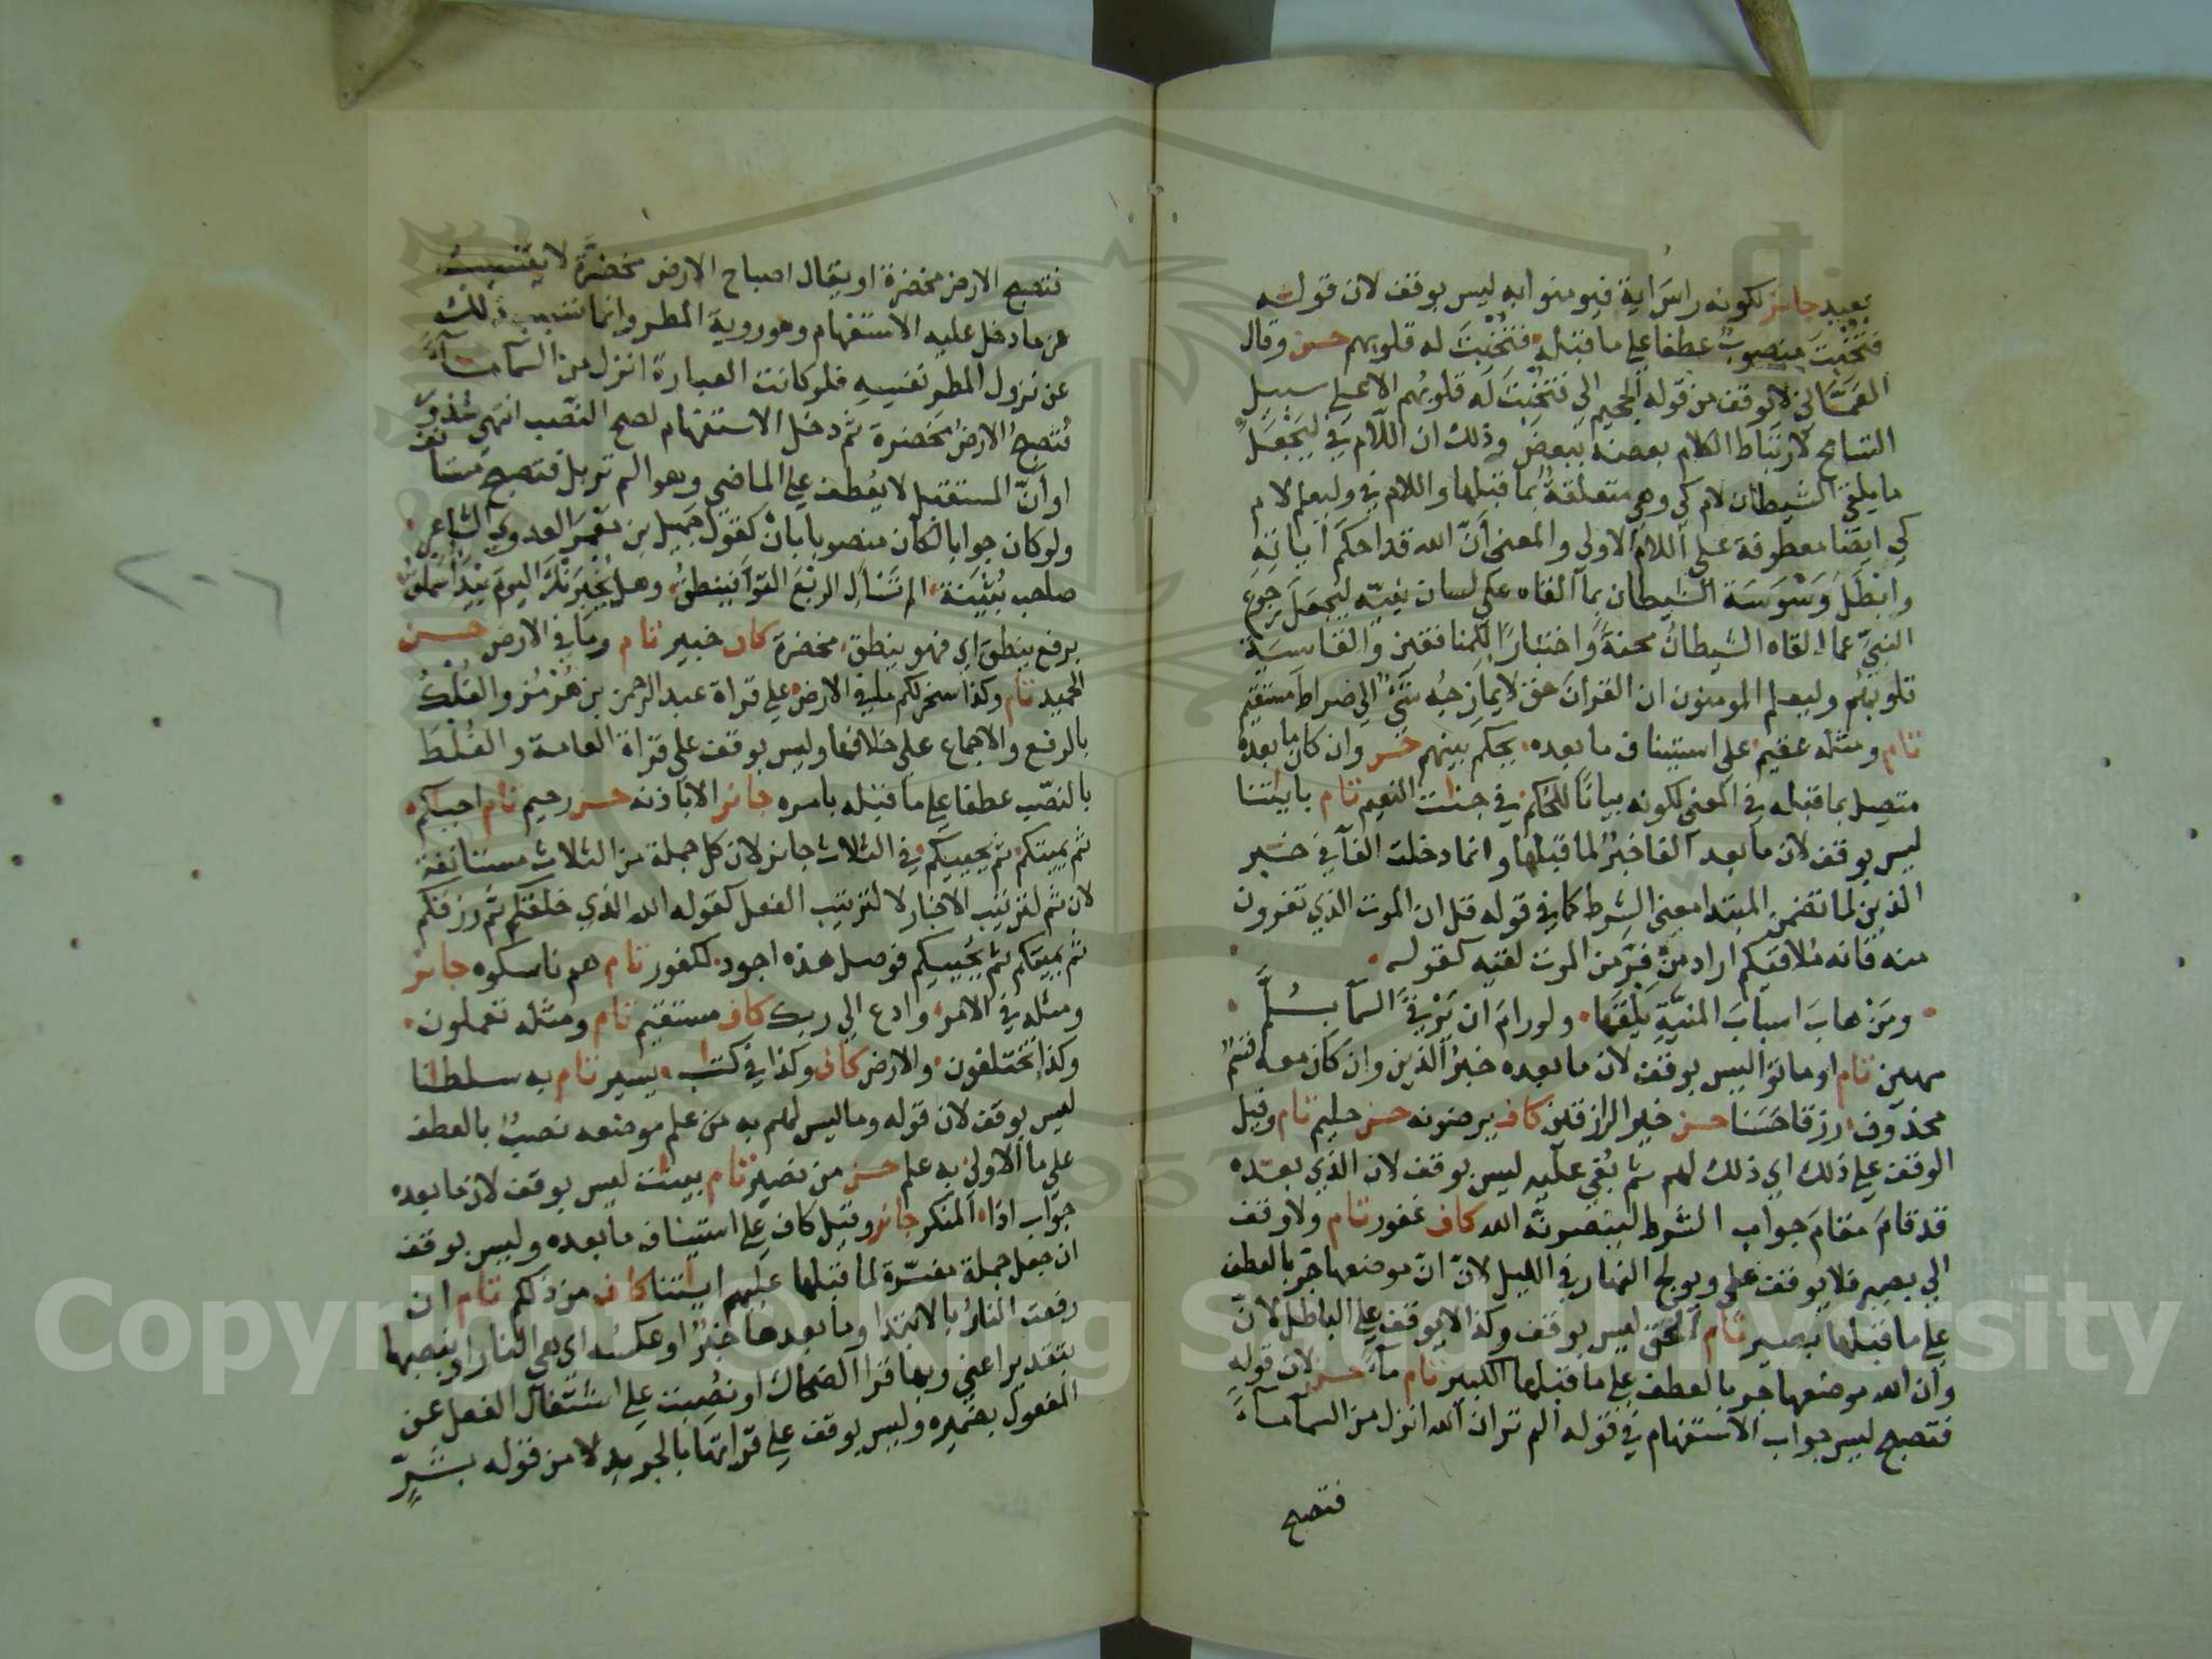 بعيد جائز لكونه راس اية فيومنوا به ليس بوقف لان قوله
فتخبت منصوب عطفا علي ما قبله فتخبت له قلوبهم حسن وقال
العماني لا وقف من قوله الحكيم الي فتخبت له قلوبهم الا علي سبيل
التسامح لارتباط الكلام بعضه ببعض وذلك ان اللام في ليجعل
ما يلقي الشيطان لام كي وهي متعلقة بما قبلها واللام في وليعلم لام
كي ايضا معطوفة علي اللام الاولي والمعني ان الله قد احكم اياته
وابطل وسوسة الشيطان بما القاه علي لسان نبيه ليجعل رجوع
النبي عما القاه الشيطان محنة واختبارا للمنافقين والقاسية
قلوبهم وليعلم المومنون ان القران حق لا يمازجه شي الي صراط مستقيم
تام ومثله عقيم علي استيناف ما بعده يحكم بينهم حسن وان كان ما بعده
متصل بما قبله في المعني لكونه بيانا للحكم في جنات النعيم تام باياتنا
ليس بوقف لان ما بعد الفا خبر لما قبلها وانما دخلت الفا في خبر
الذين لما تضمن المبتدا معني الشرط كما في قوله قل ان الموت الذي تفرون
منه فانه ملاقيكم اراد من فر من الموت لقيه كقوله
ومن هاب اسباب المنية يلقها ولو رام ان يرقي السما بسلم
مهين تام او ماتوا ليس بوقف لان ما بعده خبر الذين وان كان معه قسم
محذوف رزقا حسنا حسن خير الرازقين كاف يرضونه حسن حليم تام وقيل
الوقف علي ذلك اي ذلك لهم ثم بغي عليه ليس بوقف لان الذي بعده
قد قام مقام جواب الشرط لينصرنه الله كاف غفور تام ولا وقف
الي بصير فلا يوقف علي ويولج النهار في الليل لان ان موضعها جر بالعطف
علي ما قبلها بصير تام الحق ليس بوقف وكذا لا يوقف علي الباطل لان
وان الله موضعها جر بالعطف علي ما قبلها الكبير تام ماء حسن لان قوله
فتصبح ليس جواب الاستفهام في قوله الم تر ان الله انزل من السما ماء
فتصبح
فتصبح الارض مخضرة او يقال اصباح الارض مخضرة لا يتسبب
عما دخل عليه الاستفهام وهو روية المطر وانما تسبب ذلك
عن نزول المطر نفسه فلو كانت العبارة انزل من السما ماء
فتصبح الارض مخضرة ثم دخل الاستفهام لصح النصب انتهي شذور
او ان المستقبل لا يعطف علي الماضي وهو الم تر بل فتصبح مستانف
ولو كان جوابا لكان منصوبا بان كقول جميل بن معمر العدوي الشاعر
صاحب بثينة الم تسأل الربع القوا فينطق وهل يخبرنك اليوم بيدا سملق
برفع ينطق اي فهو ينطق مخضرة كاف خبير تام وما في الارض حسن
الحميد تام وكذا سخر لكم ما في الارض علي قراة عبد الرحمن بن هرمز والفلك
بالرفع والاجماع علي خلافها وليس بوقف علي قراة العامة والفلك
بالنصب عطفا علي ما قبله بامره جائز الا باذنه حسن رحيم تام احياكم
ثم يميتكم ثم يحييكم في الثلاث جائز لان كل جملة من الثلاث مستانفة
لان ثم لترتيب الاخبار لا لترتيب الفعل كقوله الله الذي خلقكم ثم رزقكم
ثم يميتكم ثم يحييكم فوصل هذه اجود لكفور تام هم ناسكوه جائز
ومثله في الامر وادع الي ربك كاف مستقيم تام ومثله تعملون
وكذا تختلفون والارض كاف وكذا في كتاب يسير تام به سلطانا
ليس بوقف لان قوله وما ليس لهم به من علم موضعه نصب بالعطف
علي ما الاولي به علم حسن من نصير تام بينات ليس بوقف لان ما بعده
جواب اذا المنكر جائز وقيل كاف علي استيناف ما بعده وليس بوقف
ان جعل جملة مفسرة لما قبلها عليهم اياتنا كاف من ذلكم تام ان
رفعت النار بالابتدا وما بعدها خبر او عكسه اي هي النار او بنصبها
بتقدير اعني وبها قرا الضحاك او نصبت علي اشتغال الفعل عن
المفعول بضميره وليس بوقف علي قراتها بالجر بدلا من قوله بشر
٢٠٦
Copyright © King Saud University
1957